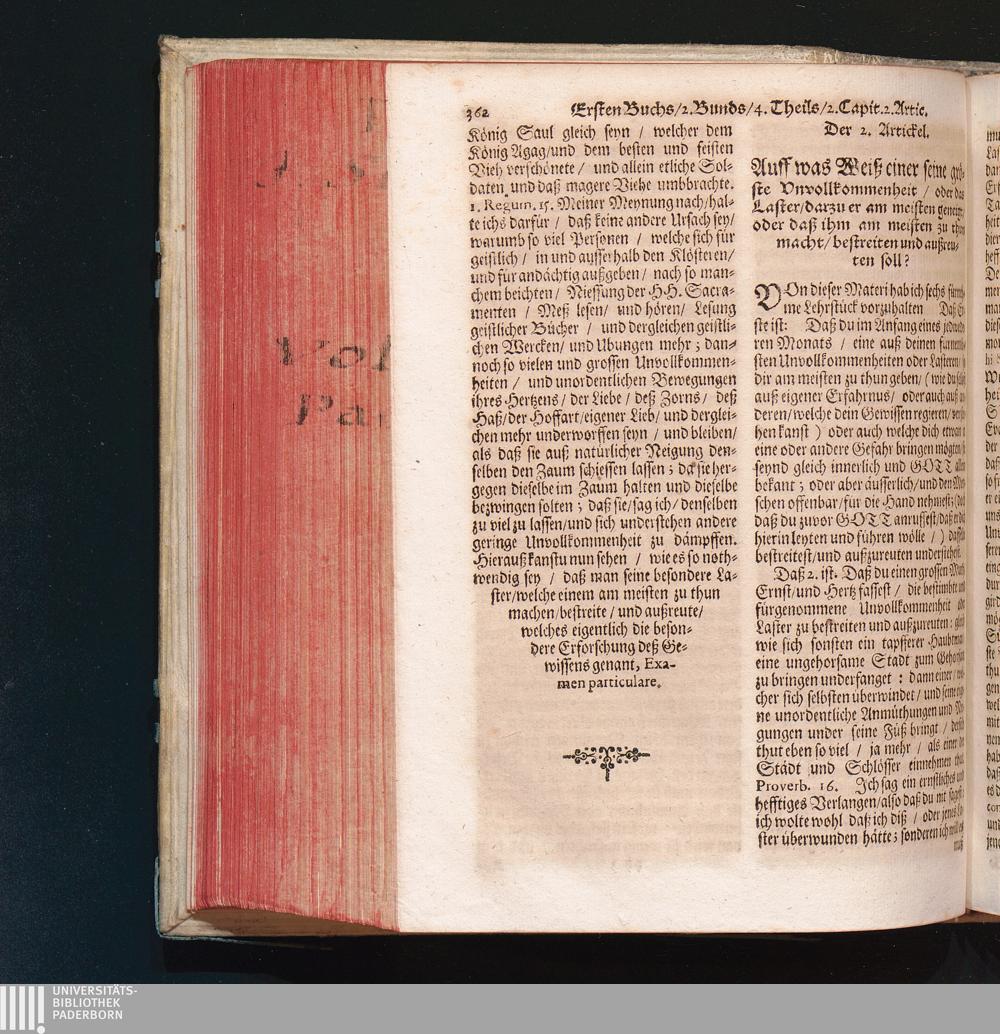 362 Ersten Buchs/2. Bunds/4. Theils/2. Capit. 2. Artic.
König Saul gleich seyn / welcher dem
König Agag/und dem besten und feisten
Vieh verschönete / und allein etliche Sol-
daten und daß magere Viehe umbbrachte.
1. Regum. 15. Meiner Meynung nach/hal-
te ichs darfür / daß keine andere Ursach sey/
warumb so viel Personen / welche sich für
geistlich / in und ausserhalb den Klösteren/
und für andächtig außgeben / nach so man-
chem beichten / Niessung der H.H. Sacra-
menten / Meß lesen/ und hören/ Lesung
geistlicher Bücher / und dergleichen geistli-
chen Wercken/ und Ubungen mehr; dan-
noch so vielen und grossen Unvollkommen-
heiten / und unordentlichen Bewegungen
ihres Hertzens/ der Liebe / deß Zorns/ deß
Haß/ der Hoffart/eigener Lieb/ und derglei-
chen mehr underworffen seyn / und bleiben/
als daß sie auß natürlicher Neigung den-
selben den Zaum schiessen lassen; da sie her-
gegen dieselbe im Zaum halten und dieselbe
bezwingen solten; daß sie/sag ich/ denselben
zu viel zu lassen/und sich understehen andere
geringe Unvollkommenheit zu dämpffen.
Hierauß kanstu nun sehen / wie es so noth-
wendig sey / daß man seine besondere La-
ster/welche einem am meisten zu thun
machen/bestreite / und außreute/
welches eigentlich die beson-
dere Erforschung deß Ge-
wissens genant, Exa-
men particulare.
Der 2. Artickel.
Auff was Weiß einer seine grös-
ste Unvollkommenheit / oder das
Laster/darzu er am meisten geneigt/
oder daß ihm am meisten zu thun
macht/ bestreiten und außreu-
ten soll?
VOn dieser Materi hab ich sechs
me Lehrstück vorzuhalten Daß
ste ist: Daß du im Anfang eines
ren Monats / eine auß deinen
sten Unvollkommenheiten oder Lasteren/
dir am meisten zu thun geben/ (wie du
auß eigener Erfahrnus/ oder auch auß
deren/welche dein Gewissen regieren/
hen kanst) oder auch welche dich etwan
eine oder andere Gefahr bringen mögten/
seynd gleich innerlich und GOTT allein
bekant; oder aber äusserlich/und den
schen offenbar/für die Hand nehmest;
daß du zuvor GOTT anruffest/
hierin leyten und führen wölle /)
bestreitest/und außzureuten
Daß 2. ist. Daß du einen grossen
Ernst/und Hertz fassest / die bestimbte und
fürgenommene Unvollkommenheit oder
Laster zu bestreiten und außzureuten:
wie sich sonsten ein tapfferer
eine ungehorsame Stadt zum
zu bringen underfanget : dann einer/
cher sich selbsten überwindet / und seine
ne unordentliche Anmüthungen und
gungen under seine Füß bringt /
thut eben so viel / ja mehr / als einer der
Städt und Schlösser einnehmen
Proverb. 16. Ich sag ein ernstliches und
hefftiges Verlangen/also daß du nit
ich wolte wohl daß ich diß / oder jenes
ster überwunden hätte; sonderen ich
UNIVERSITÄTS-
BIBLIOTHEK
PADERBORN